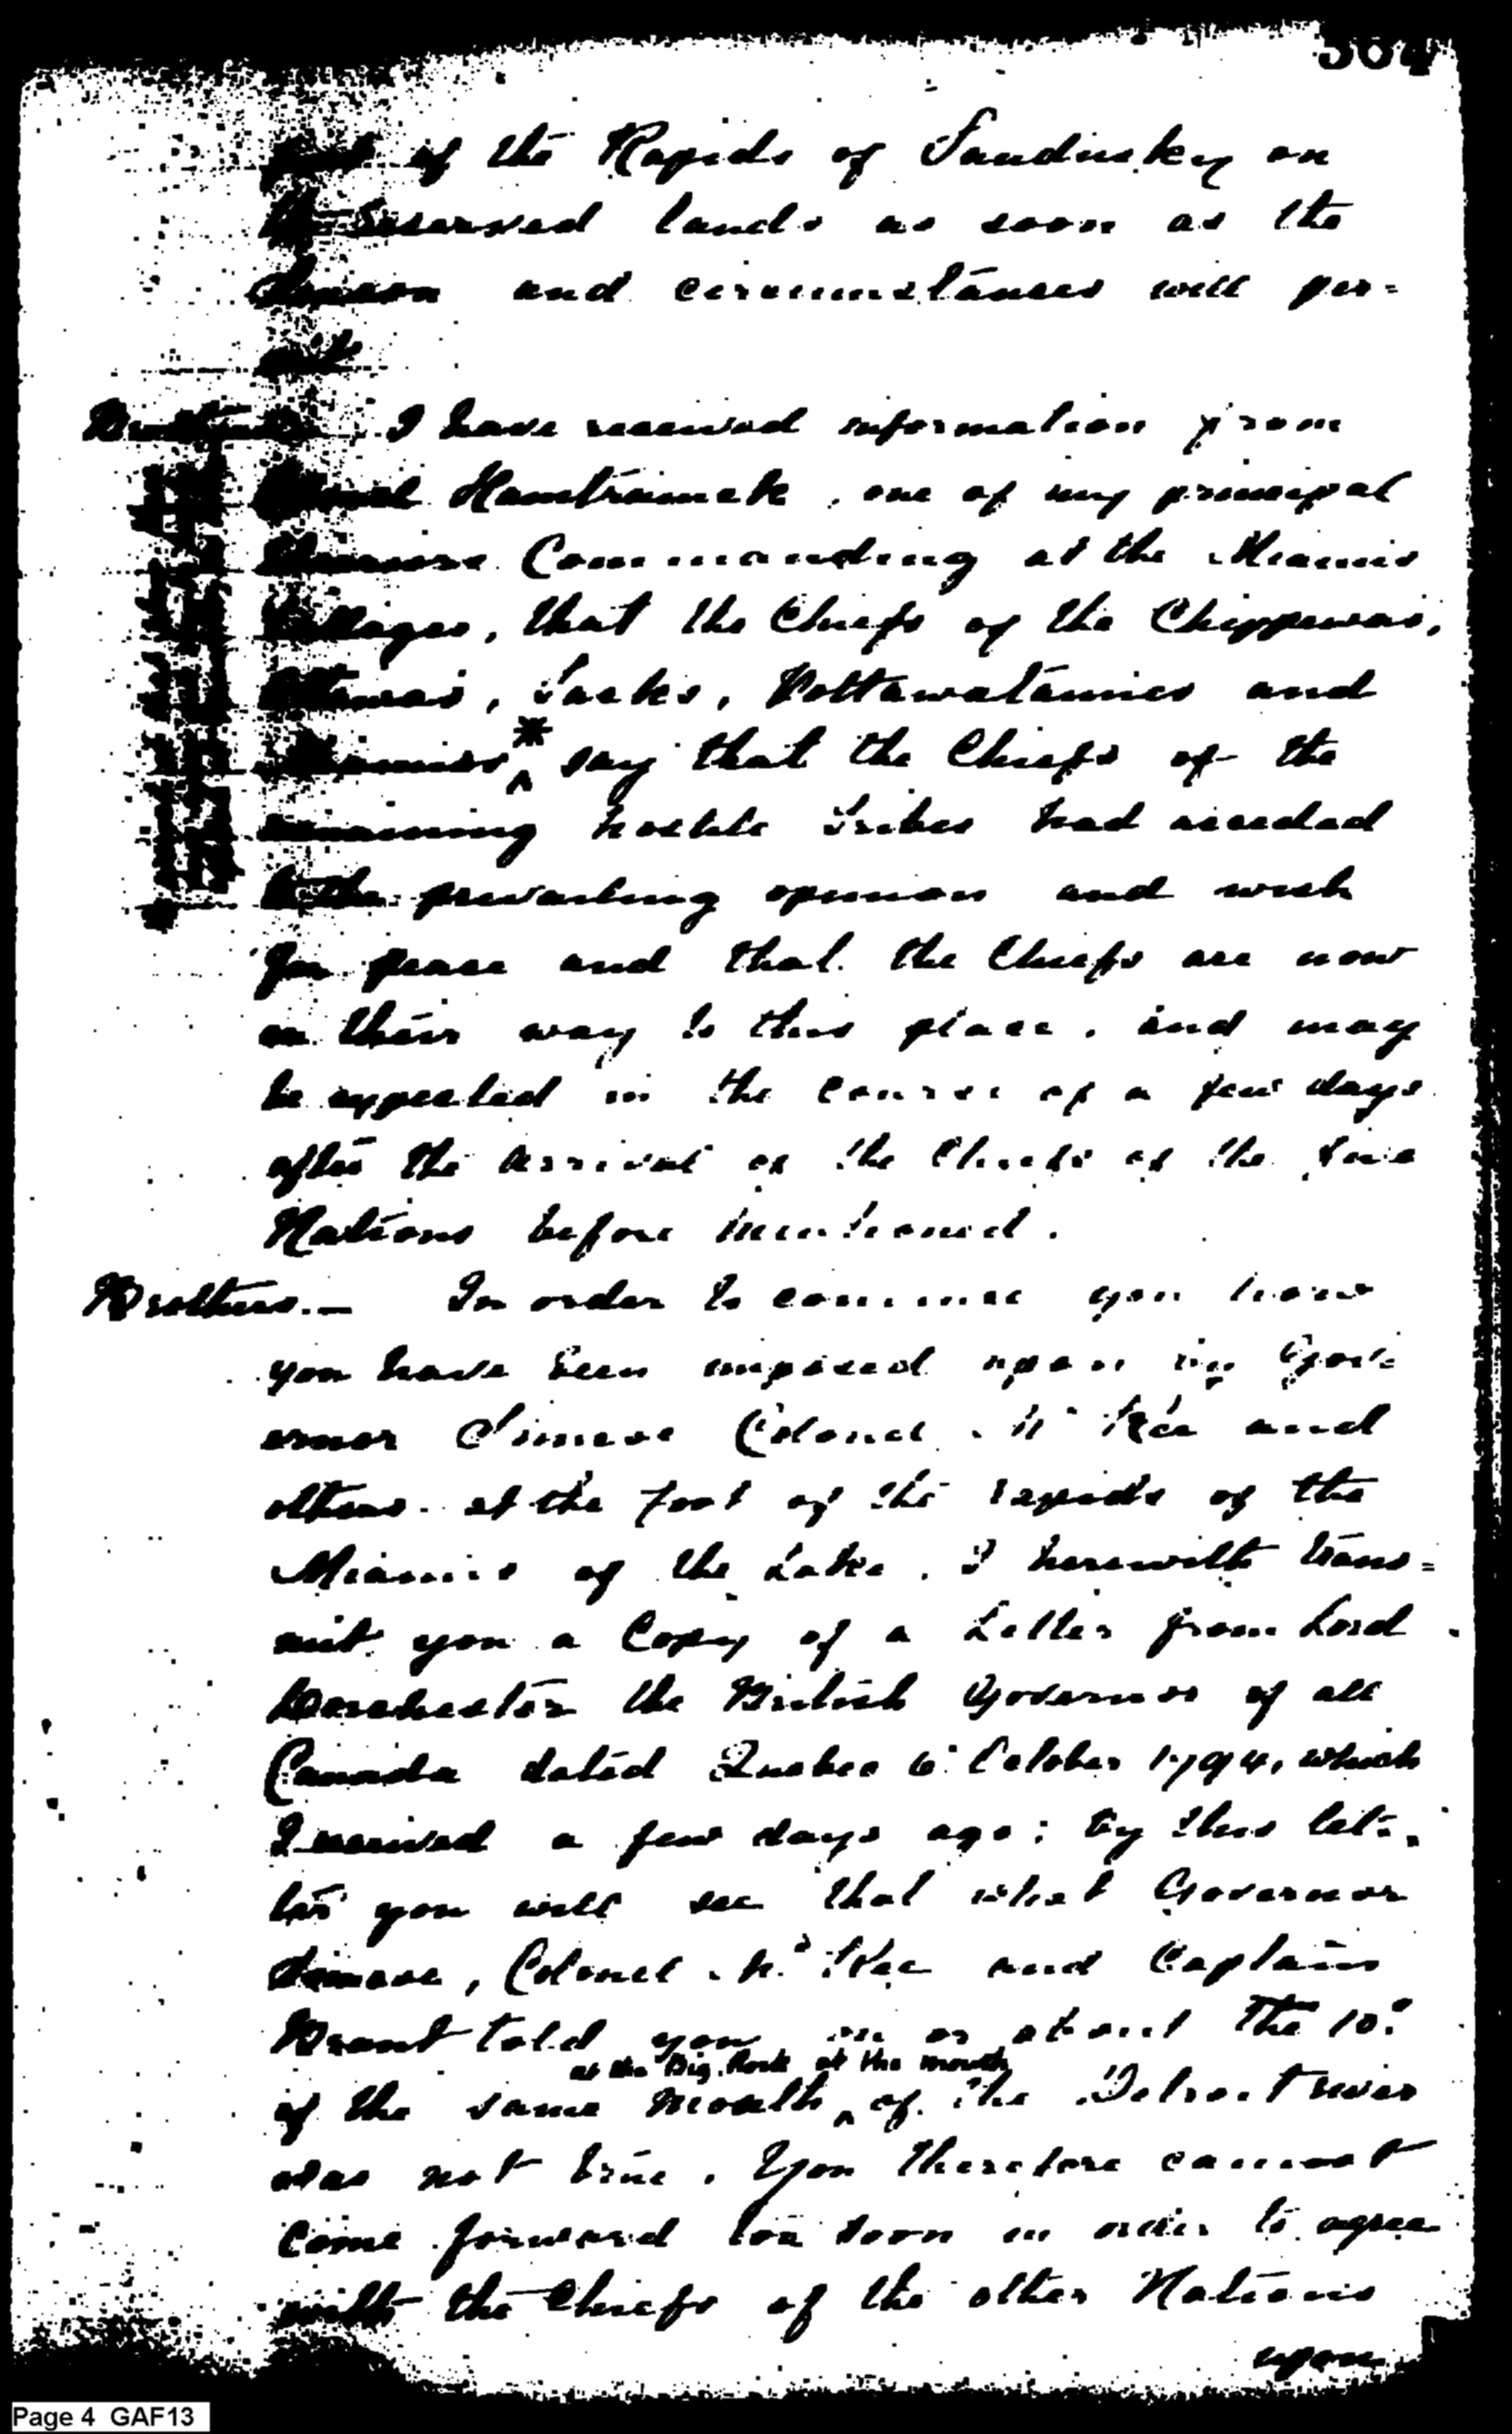 304
foot of the Rapids of Sandusky on
the reserved lands as soon as the
Season and circumstances will per=
mit
Brothers I have received information from
Colonel Hamtramck, one of my principal
Warriors Commanding at the Miamis
Villages, that the Chiefs of the Chippewas,
Ottawas, Sacks, Pottawatamies and
Miamis * ^ say that the Chiefs of the
remaining hostile Tribes had acceded
to the prevailing opinion and wish
for peace and that the Chiefs are now
on their way to this place, and may
be expected in the course of a few days
after the arrival of the Chiefs of the five
Nations before mentioned.
Brothers.— In order to convince you how
you have been imposed upon by Gov=
ernor Simcoe Colonel McKee and
others at the foot of the rapids of the
Miamis of the Lake, I herewith trans=
mit you a Copy of a Letter from Lord
Dorchester the British Governor of all
Canada dated Quebec 6 October 1794, which
I received a few days ago; by this let=
ter you will see that what Governor
Simcoe, Colonel McKee and Captain
Brant told you on or about the 10.
at the Big Rock at the mouth
of the same month ^ of the Detroit river
was not true. You therefore cannot
come forward too soon in order to agree
with the Chiefs of the other Nations
upon
Page 4 GAF13